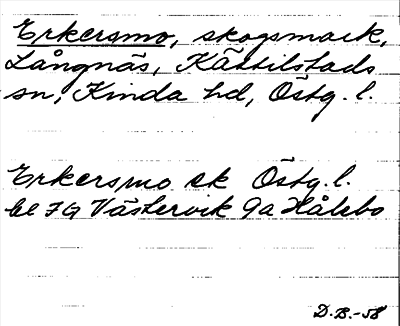 Erkersmo, skogsmark,
Långnäs, Kättilstads
sn, Kinda hd, Östg. l.
Erkersmo ek Östg. l.
bl 7G Västervik 9a Hålebo
D.B.-58